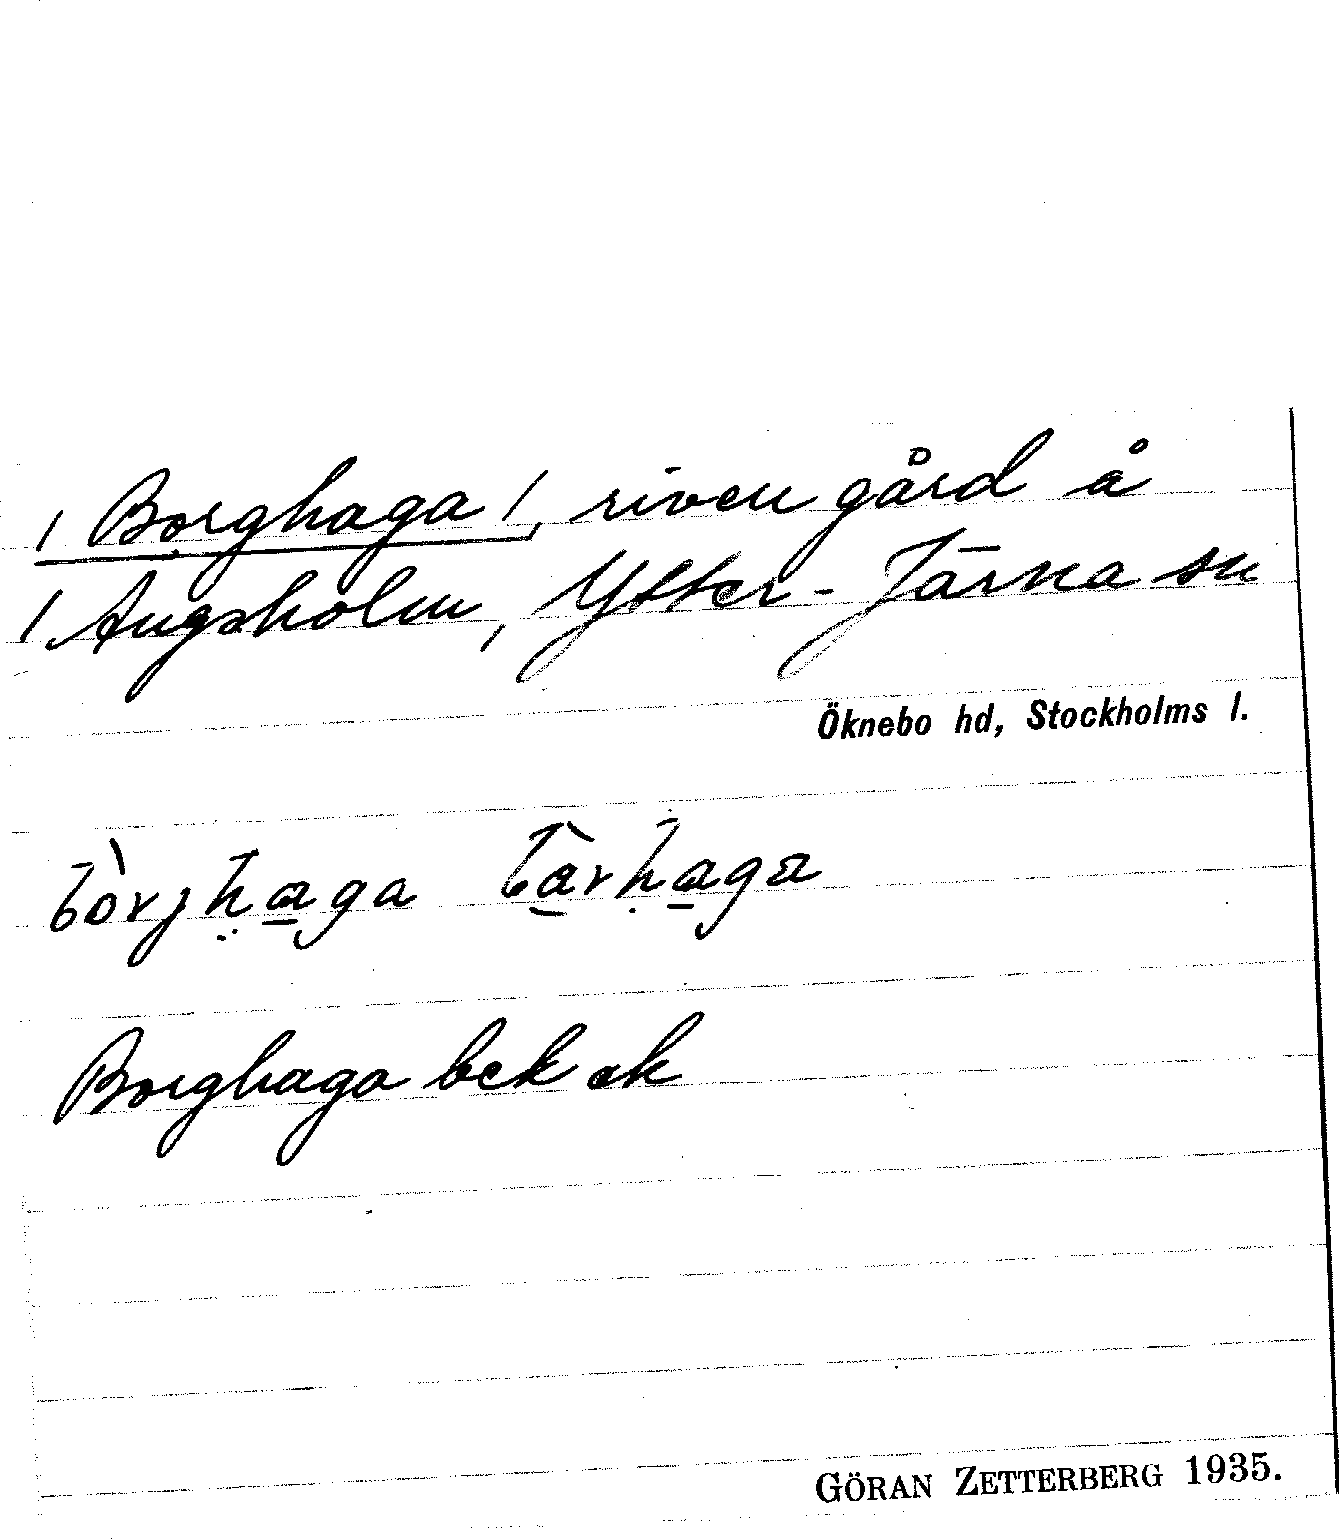 / Borghaga /, riven gård å
/ Ängsholm, Ytter-Järna sn
Öknebo hd, Stockholms l.
Borghaga bek ek
GÖRAN ZETTERBERG 1935.